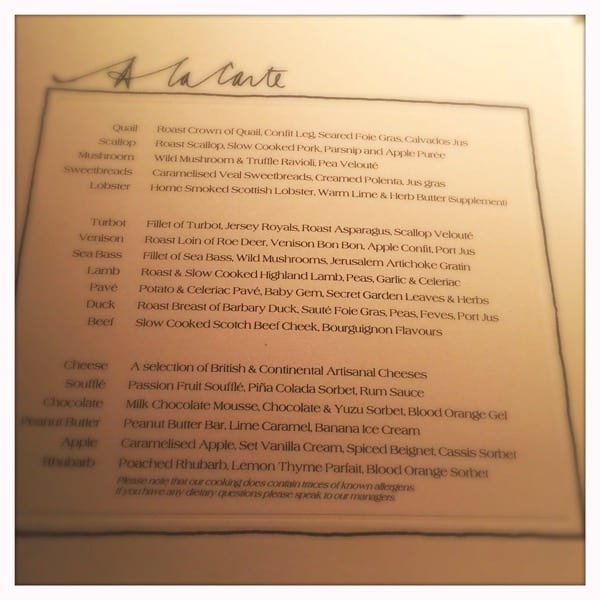 A la Carte
Quail Roast Crown of Quail, Confit Leg, Seared Foie Gras, Calvados Jus
Scallop Roast Scallop, Slow Cooked Pork, Parsnip and Apple Purée
Mushroom Wild Mushroom & Truffle Ravioli, Pea Velouté
Sweetbreads Caramelised Veal Sweetbreads, Creamed Polenta, Jus gras
Lobster Home Smoked Scottish Lobster, Warm Lime & Herb Butter (Supplement)
Turbot Fillet of Turbot, Jersey Royals, Roast Asparagus, Scallop Velouté
Venison Roast Loin of Roe Deer, Venison Bon Bon, Apple Confit, Port Jus
Sea Bass Fillet of Sea Bass, Wild Mushrooms, Jerusalem Artichoke Gratin
Lamb Roast & Slow Cooked Highland Lamb, Peas, Garlic & Celeriac
Pavé Potato & Celeriac Pavé, Baby Gem, Secret Garden Leaves & Herbs
Duck Roast Breast of Barbary Duck, Sauté Foie Gras, Peas, Feves, Port Jus
Beef Slow Cooked Scotch Beef Cheek, Bourguignon Flavours
Cheese A selection of British & Continental Artisanal Cheeses
Soufflé Passion Fruit Soufflé, Piña Colada Sorbet, Rum Sauce
Chocolate Milk Chocolate Mousse, Chocolate & Yuzu Sorbet, Blood Orange Gel
Peanut Butter Peanut Butter Bar, Lime Caramel, Banana Ice Cream
Apple Caramelised Apple, Set Vanilla Cream, Spiced Beignet, Cassis Sorbet
Rhubarb Poached Rhubarb, Lemon Thyme Parfait, Blood Orange Sorbet
Please note that our cooking does contain traces of known allergens.
If you have any dietary questions please speak to our managers.